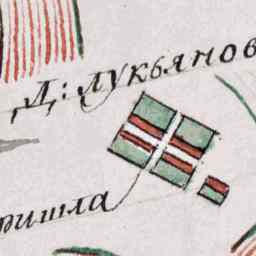 Д: лукьянов
ришла